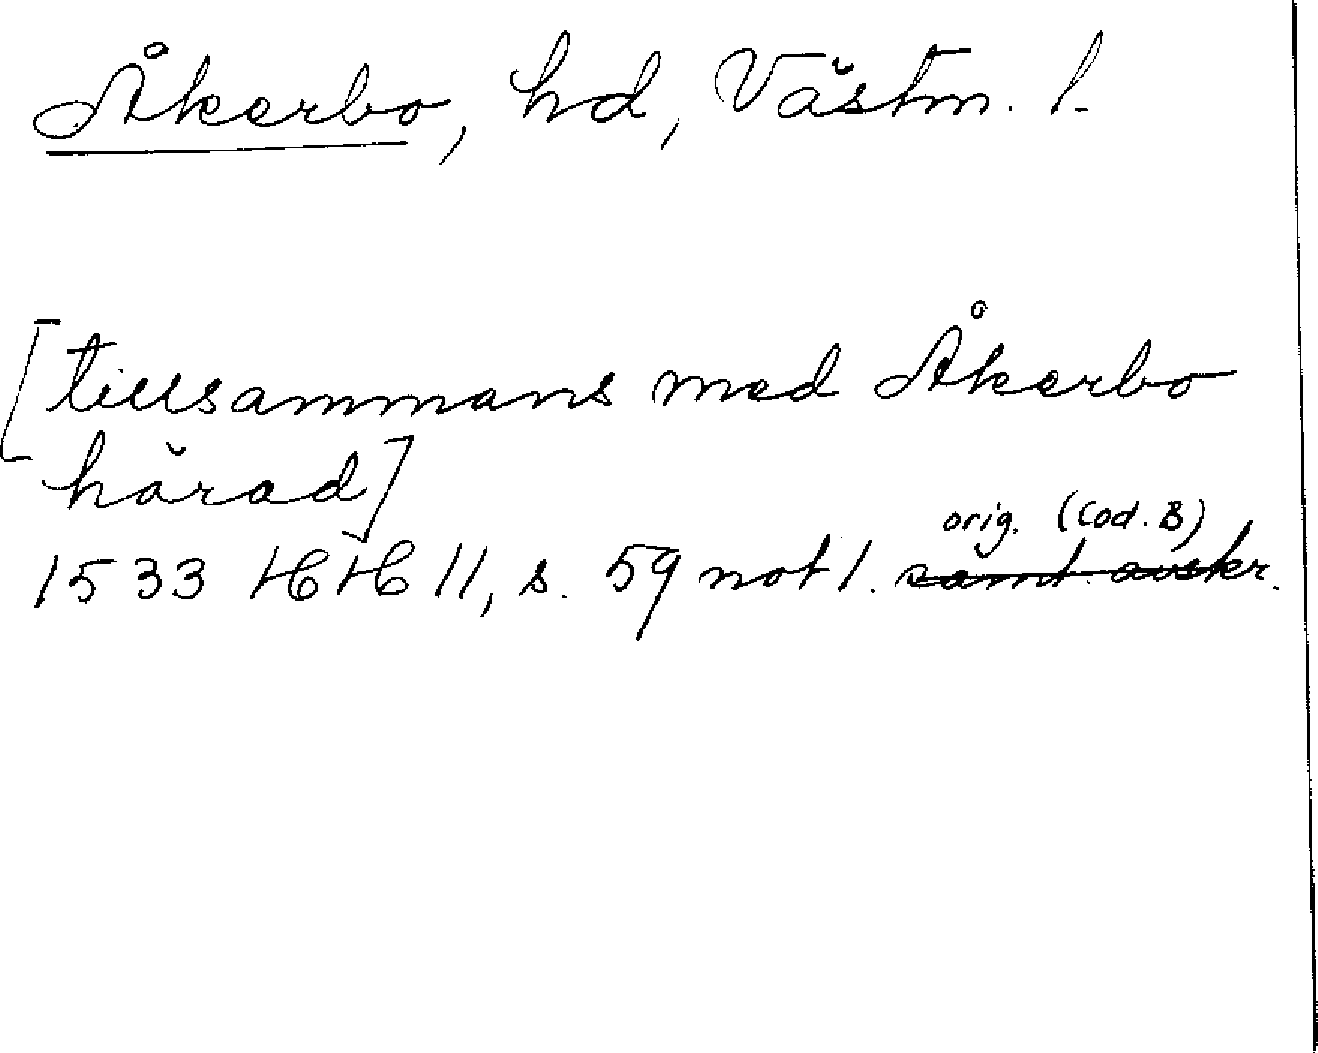 Åkerbo, hd, Västm. l.
[tillsammans med Åkerbo
härad]
orig. (Cod. B)
1533 HH 11, s. 59 not 1. samt. avskr.